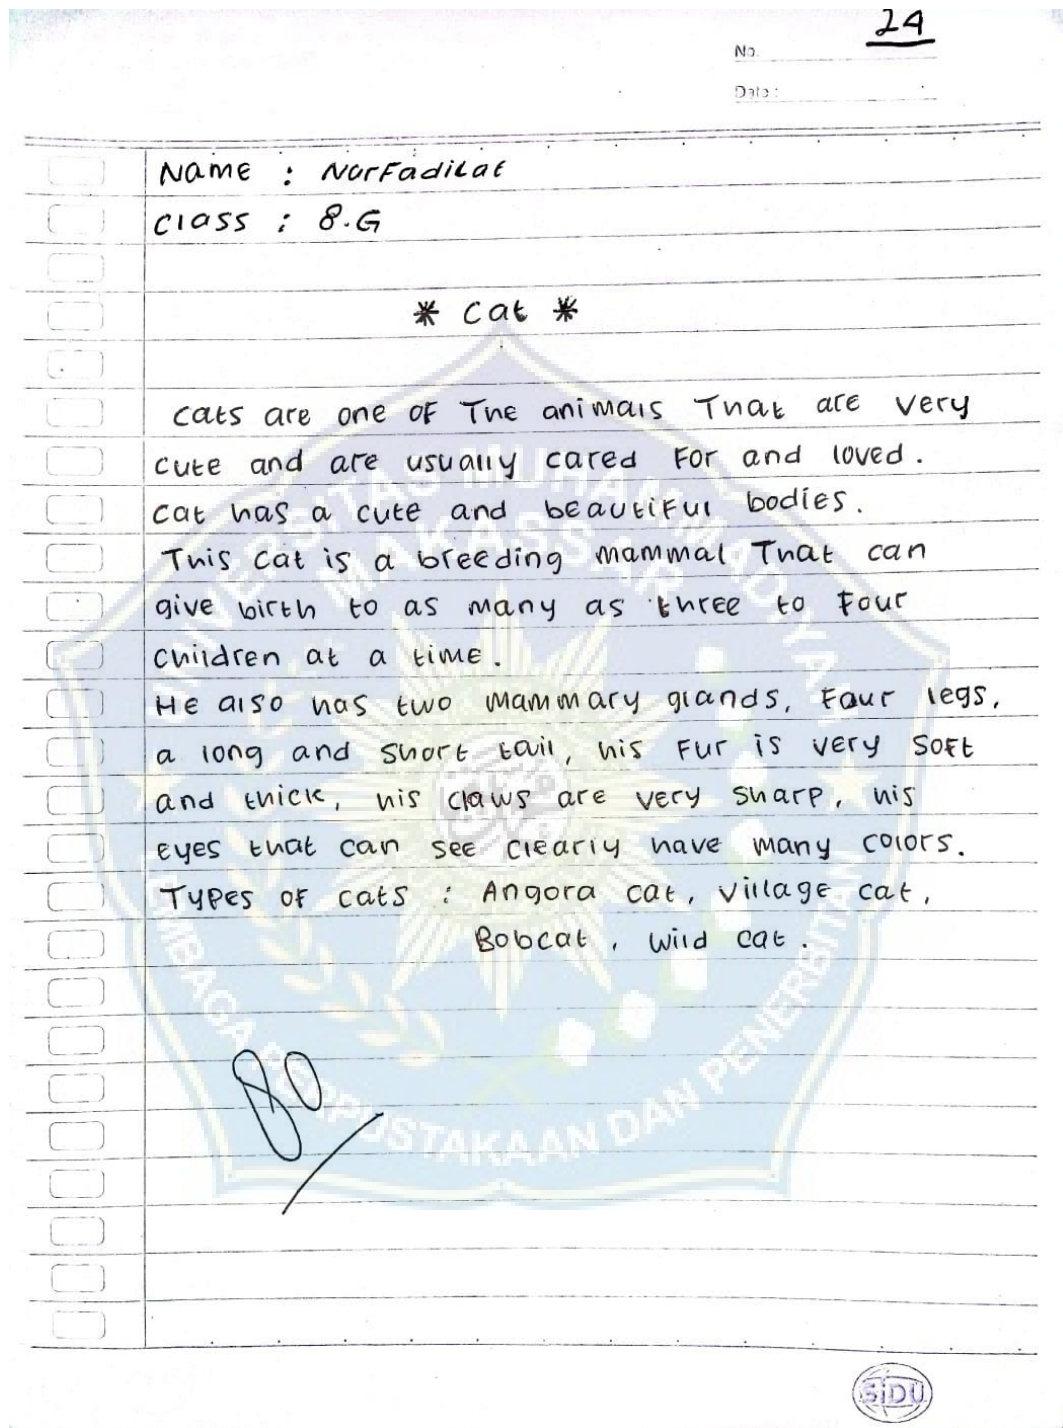 24
No.
Date :
Name : NurFadilat
Class : 8.G
* Cat *
Cats are one of The animals That are very
cute and are usually cared For and loved.
Cat has a cute and beautiful bodies.
This Cat is a breeding mammal That can
give birth to as many as three to Four
Children at a time.
He also has two mammary glands, Four legs,
a long and Short tail, his Fur is very Soft
and thick, his claws are very sharp, his
eyes that can see clearly have many colors.
Types of cats : Angora cat, village cat,
Bobcat, wild cat.
80
UNIVERSITAS MUHAMMADIYAH
MAKASSAR
LEMBAGA PERPUSTAKAAN DAN PENERBITAN
SiDU